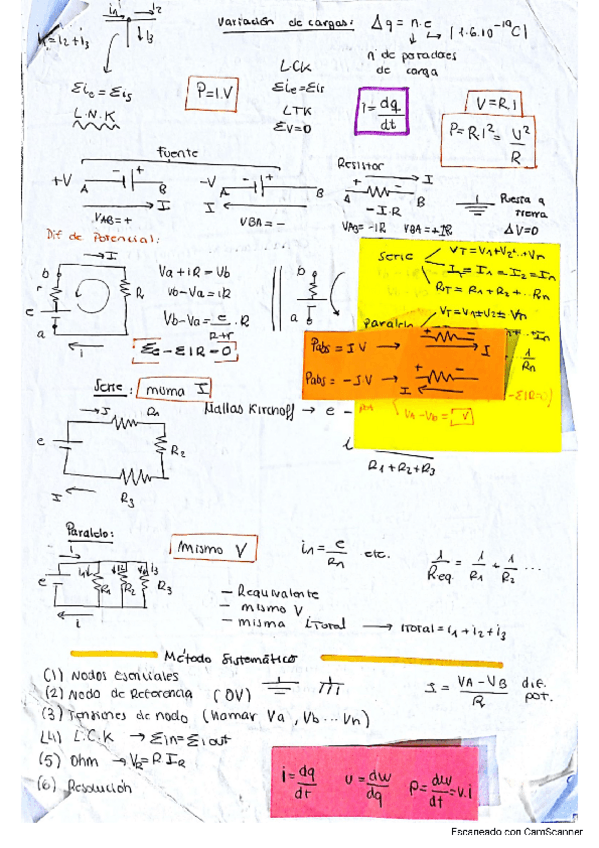 i1 i2
i3
i1=i2+i3
Variación de cargas: Δq = n.e
(1.6.10⁻¹⁹C)
nº de portadores
de carga
Σie = Σis
L.N.K
P=I.V
LCK
Σie=Σis
LTK
ΣV=0
i = dq/dt
V=R.I
P= RI² = V²/R
Fuente
+V A - + B
I
VAB= +
-V A - + B
I
VBA= -
Resistor
I
A + - B
- I.R
VAB= -IR VBA=+IR
Puesta a
tierra
ΔV=0
Dif de Potencial:
I
b
r
e
a
R
i
Va + iR = Vb
Vb-Va = iR
Vb-Va = e/R+r . R
Σe - ΣIR = 0
b
a
Serie
VT= V1+V2+..Vn
In = I1 = I2 = In
RT= R1+R2+...Rn
Paralelo
VT= V1=V2= Vn
1/Rn
Pabs = I.V → + - I
Pabs = -I.V → + - I
VA-VB = V
Serie: misma I
I R1
e R2
I R3
Mallas Kirchoff → e -
i
R1+R2+R3
Paralelo:
i
e i1 i2 i3
R1 R2 R3
i
mismo V
in = e/Rn etc.
1/Req. = 1/R1 + 1/R2 ...
- Requivalente
- mismo V
- misma iTotal → iTotal = i1+i2+i3
Método Sistemático
(1) Nodos Esenciales
(2) Nodo de Referencia (0V)
I = VA-VB/R dif. pot.
(3) Tensiones de nodo (llamar Va, Vb ... Vn)
(4) L.C.K → Σin=Σiout
(5) Ohm → VR=R.IR
(6) Resolución
i = dq/dt v = dw/dq P = dw/dt = v.i
Escaneado con CamScanner